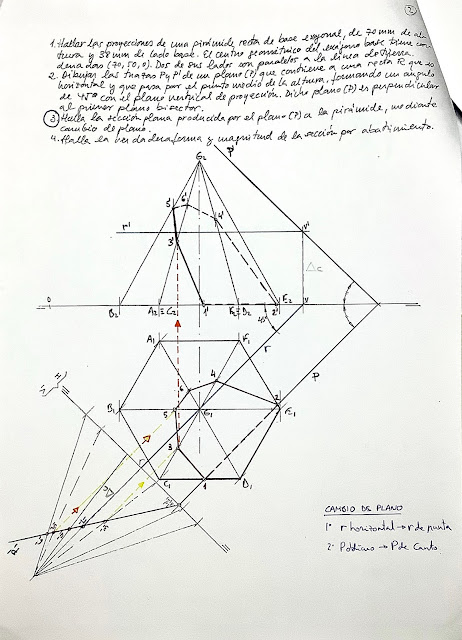 3
1. Hallar las proyecciones de una pirámide recta de base exagonal, de 70 mm de al-
tura y 38 mm de lado base. El centro geométrico del exágono base tiene coor-
denadas (70, 50, 0). Dos de sus lados son paralelos a la línea de tierra.
2. Dibujar las trazas P y P' de un plano (P) que contiene a una recta R que es
horizontal y que pasa por el punto medio de la altura, formando un ángulo
de 45º con el plano vertical de proyección. Dicho plano (P) es perpendicular
al primer plano bisector.
3. Halla la sección plana producida por el plano (P) a la pirámide, mediante
cambio de plano.
4. Halla la verdadera forma y magnitud de la sección por abatimiento.
G2 P'
5' 6' 4'
r' 3' V'
Δc
0 B2 A2 ≡ C2 1' F2 ≡ D2 2' E2 V
45º
r P
A1 F1
6 4 2
B1 5 G1 E1
3
C1 1 D1
r
CAMBIO DE PLANO
1º r horizontal → r de punta
2º P oblicuo → P de Canto